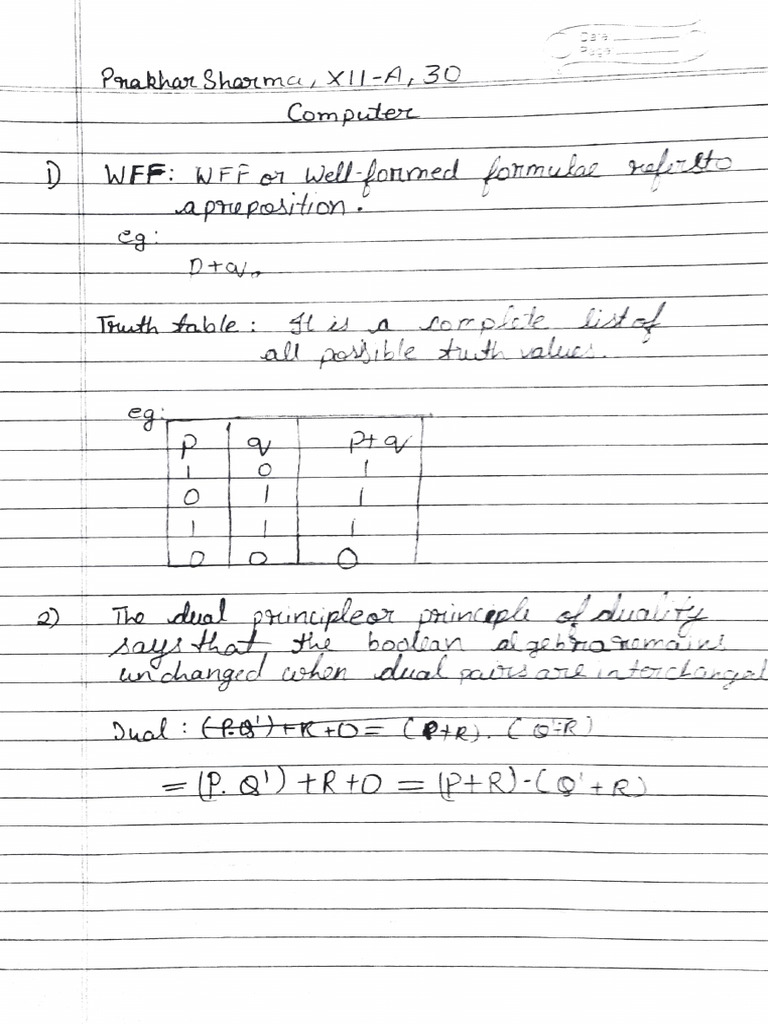 Date
Page
Prakhar Sharma, XII-A, 30
Computer
1) WFF: WFF or Well-formed formulae refers to
a preposition.
eg:
p+q.
Truth table: It is a complete list of
all possible truth values.
eg:
p q p+q
1 0 1
0 1 1
1 1 1
0 0 0
2) The dual principle or principle of duality
says that, the boolean algebra remains
unchanged when dual pairs are interchanged
Dual: (P.Q')+R+0= (P+R). (Q'+R)
= (P. Q') +R+0 = (P+R)·(Q'+R)